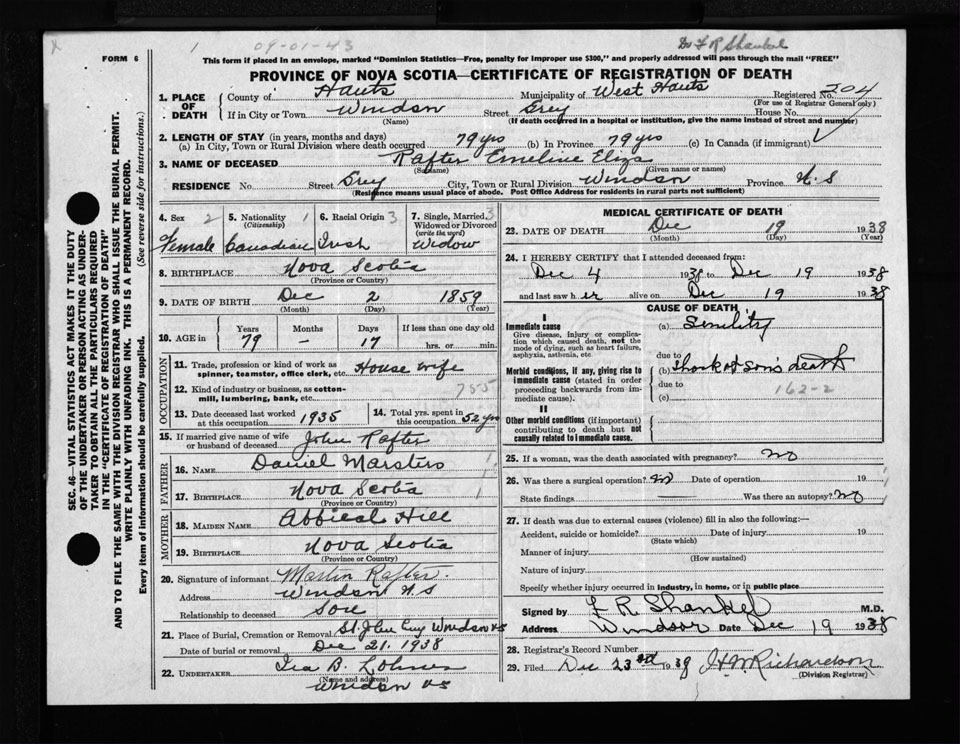 1 09-01-43 Dr F R Shankel
FORM 6
This form if placed in an envelope, marked "Dominion Statistics—Free, penalty for improper use $300," and properly addressed will pass through the mail "FREE"
PROVINCE OF NOVA SCOTIA—CERTIFICATE OF REGISTRATION OF DEATH
1. PLACE OF DEATH County of Hants Municipality of West Hants Registered No. 204
(For use of Registrar General only)
If in City or Town Windsor Street Grey House No.
(Name) (If death occurred in a hospital or institution, give the name instead of street and number)
2. LENGTH OF STAY (in years, months and days)
(a) In City, Town or Rural Division where death occurred 79 yrs (b) In Province 79 yrs (c) In Canada (if immigrant)
3. NAME OF DECEASED Rafter Emeline Eliza
(Surname) (Given name or names)
RESIDENCE No. Street Grey City, Town or Rural Division Windsor Province N.S
(Residence means usual place of abode. Post Office Address for residents in rural parts not sufficient)
SEC. 46—VITAL STATISTICS ACT MAKES IT THE DUTY
OF THE UNDERTAKER OR PERSON ACTING AS UNDER-
TAKER TO OBTAIN ALL THE PARTICULARS REQUIRED
IN THE "CERTIFICATE OF REGISTRATION OF DEATH"
AND TO FILE THE SAME WITH THE DIVISION REGISTRAR WHO SHALL ISSUE THE BURIAL PERMIT.
WRITE PLAINLY WITH UNFADING INK. THIS IS A PERMANENT RECORD.
Every item of information should be carefully supplied. (See reverse side for instructions.)
4. Sex 2 5. Nationality 1 (Citizenship) 6. Racial Origin 3 7. Single, Married, 3 Widowed or Divorced (write the word)
Female Canadian Irish Widow
8. BIRTHPLACE Nova Scotia
(Province or Country)
9. DATE OF BIRTH Dec 2 1859
(Month) (Day) (Year)
10. AGE in Years Months Days If less than one day old
79 – 17 hrs. or min.
OCCUPATION
11. Trade, profession or kind of work as
spinner, teamster, office clerk, etc. House wife
12. Kind of industry or business, as cotton-
mill, lumbering, bank, etc. 785
13. Date deceased last worked at this occupation 1935 14. Total yrs. spent in this occupation 52 yrs
15. If married give name of wife
or husband of deceased John Rafter
FATHER
16. NAME Daniel Marsters
17. BIRTHPLACE Nova Scotia
(Province or Country)
MOTHER
18. MAIDEN NAME Abbieal Hill
19. BIRTHPLACE Nova Scotia
(Province or Country)
20. Signature of informant Martin Rafter
Address Windsor N.S
Relationship to deceased Son
21. Place of Burial, Cremation or Removal St. John Windsor NS
Date of burial or removal Dec 21. 1938
22. UNDERTAKER Ira B. Lohnes
(Name and address)
Windsor NS
MEDICAL CERTIFICATE OF DEATH
23. DATE OF DEATH Dec 19 1938
(Month) (Day) (Year)
24. I HEREBY CERTIFY that I attended deceased from:
Dec 4 1938 to Dec 19 1938
and last saw h er alive on Dec 19 1938
CAUSE OF DEATH
I
Immediate cause (a) Senility
Give disease, injury or complica-
tion which caused death, not the
mode of dying, such as heart failure,
asphyxia, asthenia, etc. due to
Morbid conditions, if any, giving rise to (b) Shock of sons death
immediate cause (stated in order due to 162-2
proceeding backwards from im- (c)
mediate cause).
II
Other morbid conditions (if important)
contributing to death but not
causally related to immediate cause.
25. If a woman, was the death associated with pregnancy? no
26. Was there a surgical operation? no Date of operation 19
State findings — Was there an autopsy? no
27. If death was due to external causes (violence) fill in also the following:—
Accident, suicide or homicide? Date of injury 19
(State which)
Manner of injury
(How sustained)
Nature of injury
Specify whether injury occurred in industry, in home, or in public place
Signed by F R Shankel M.D.
Address Windsor Date Dec 19 1938
28. Registrar's Record Number
29. Filed Dec 23rd 1938 H W Richardson
(Division Registrar)